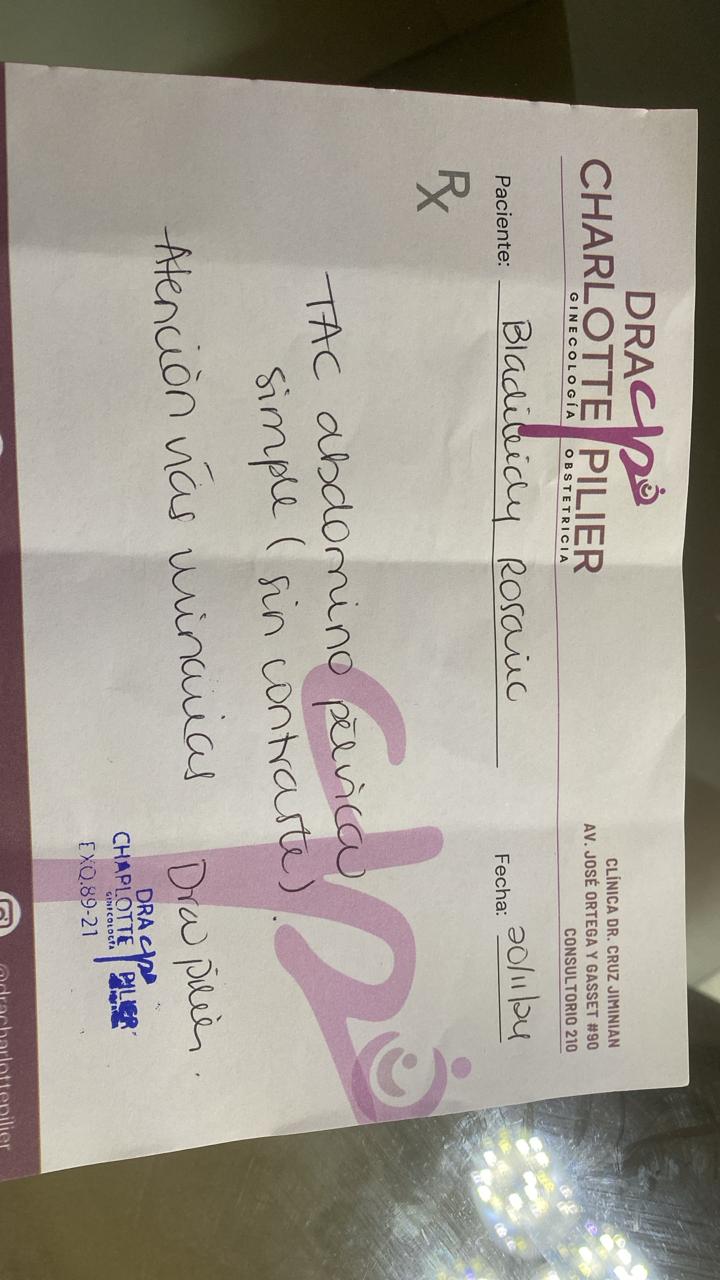 DRA cp
CHARLOTTE PILIER
GINECOLOGÍA OBSTETRICIA
CLÍNICA DR. CRUZ JIMINIAN
AV. JOSÉ ORTEGA Y GASSET #90
CONSULTORIO 210
Paciente: Bladileidy Rosario Fecha: 20/11/24
Rx
-TAC abdomino pélvica
simple (sin contraste).
-Atención vías urinarias
Dra Pilier.
DRA cp
CHARLOTTE PILIER
GINECOLOGÍA
EXQ.89-21
@dracharlottepilier